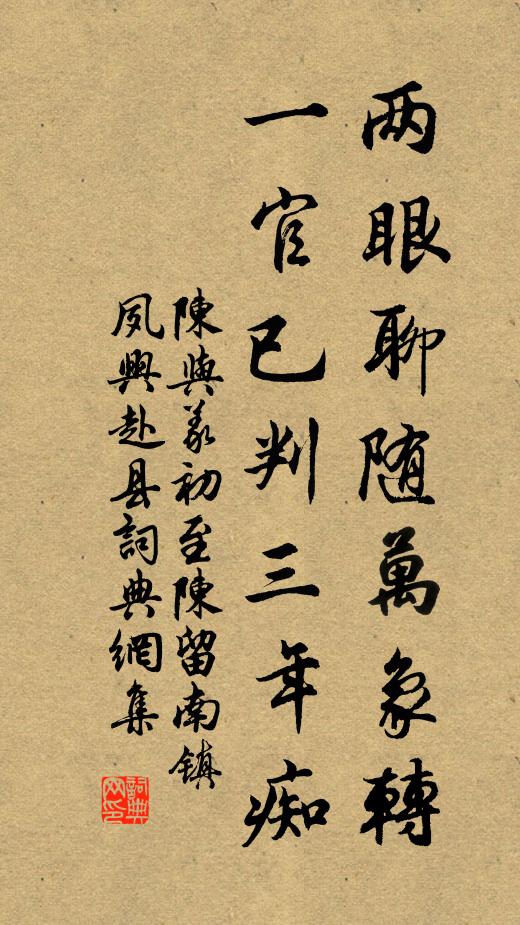 两眼聊随萬象轉
一官已判三年痴
陳與義初至陳留南镇
夙興赴县詞典網集
詞典
网印